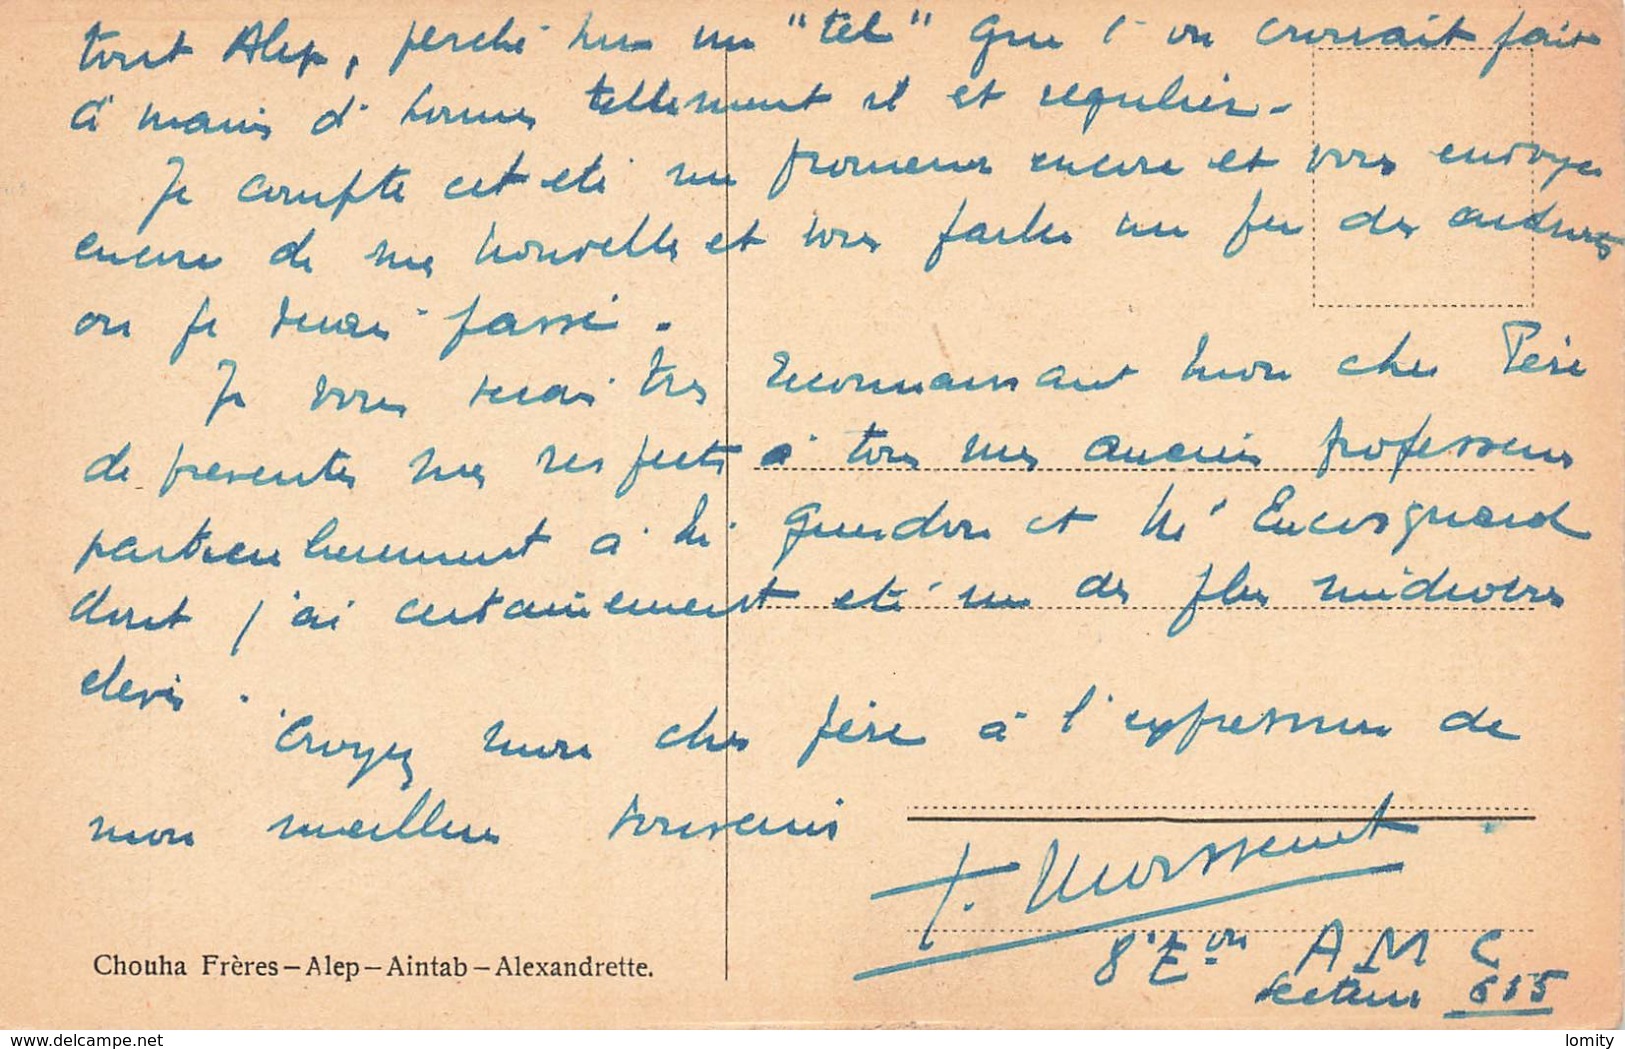 tout Alep, perché sur un "tel" que l'on croirait fait
à mains d'hommes tellement il et regulier -
Je compte cet eté me promener encore et vous envoyer
encore de mes nouvelles et vous parler un peu des endroits
ou je serai passé.
Je vous serais tres reconnaissant mon cher Père
de presenter mes respects à tous mes anciens professeurs
particulierement à Mr Guesdon et Mr Encosgnard
dont j'ai certainement eté un des plus médiocres
eleves.
Croyez mon cher père à l'expression de
mon meilleur souvenir
J. Morssent
8e Eon A M C
Secteur 615
Chouha Frères – Alep – Aintab – Alexandrette.
www.delcampe.net
lomity